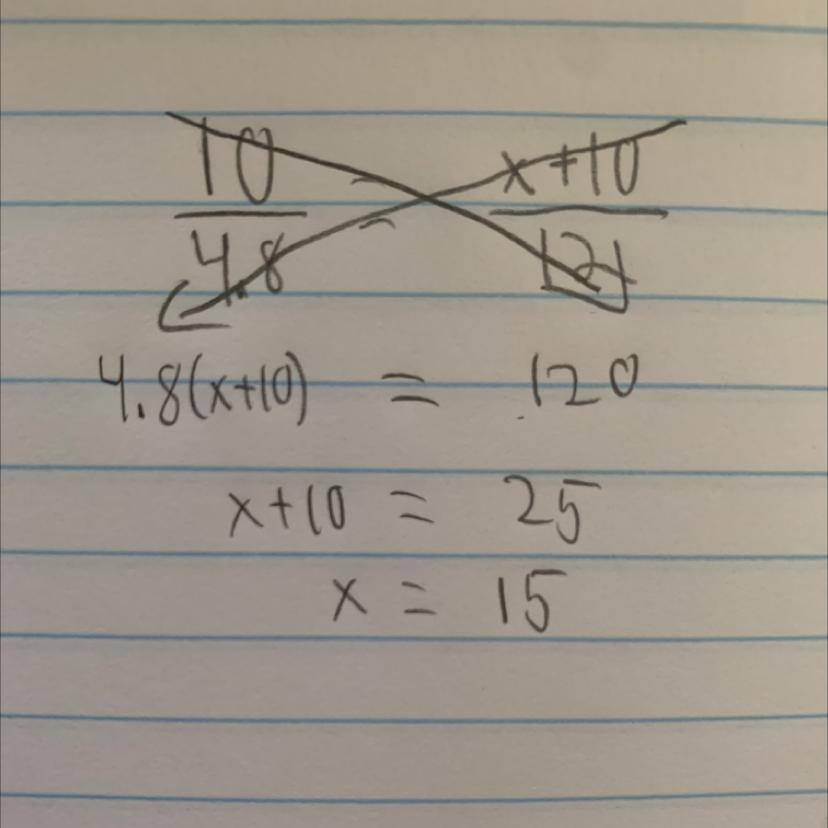 10/4.8 = x+10/12
4.8(x+10) = 120
x+10 = 25
x = 15